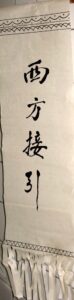 西方接引